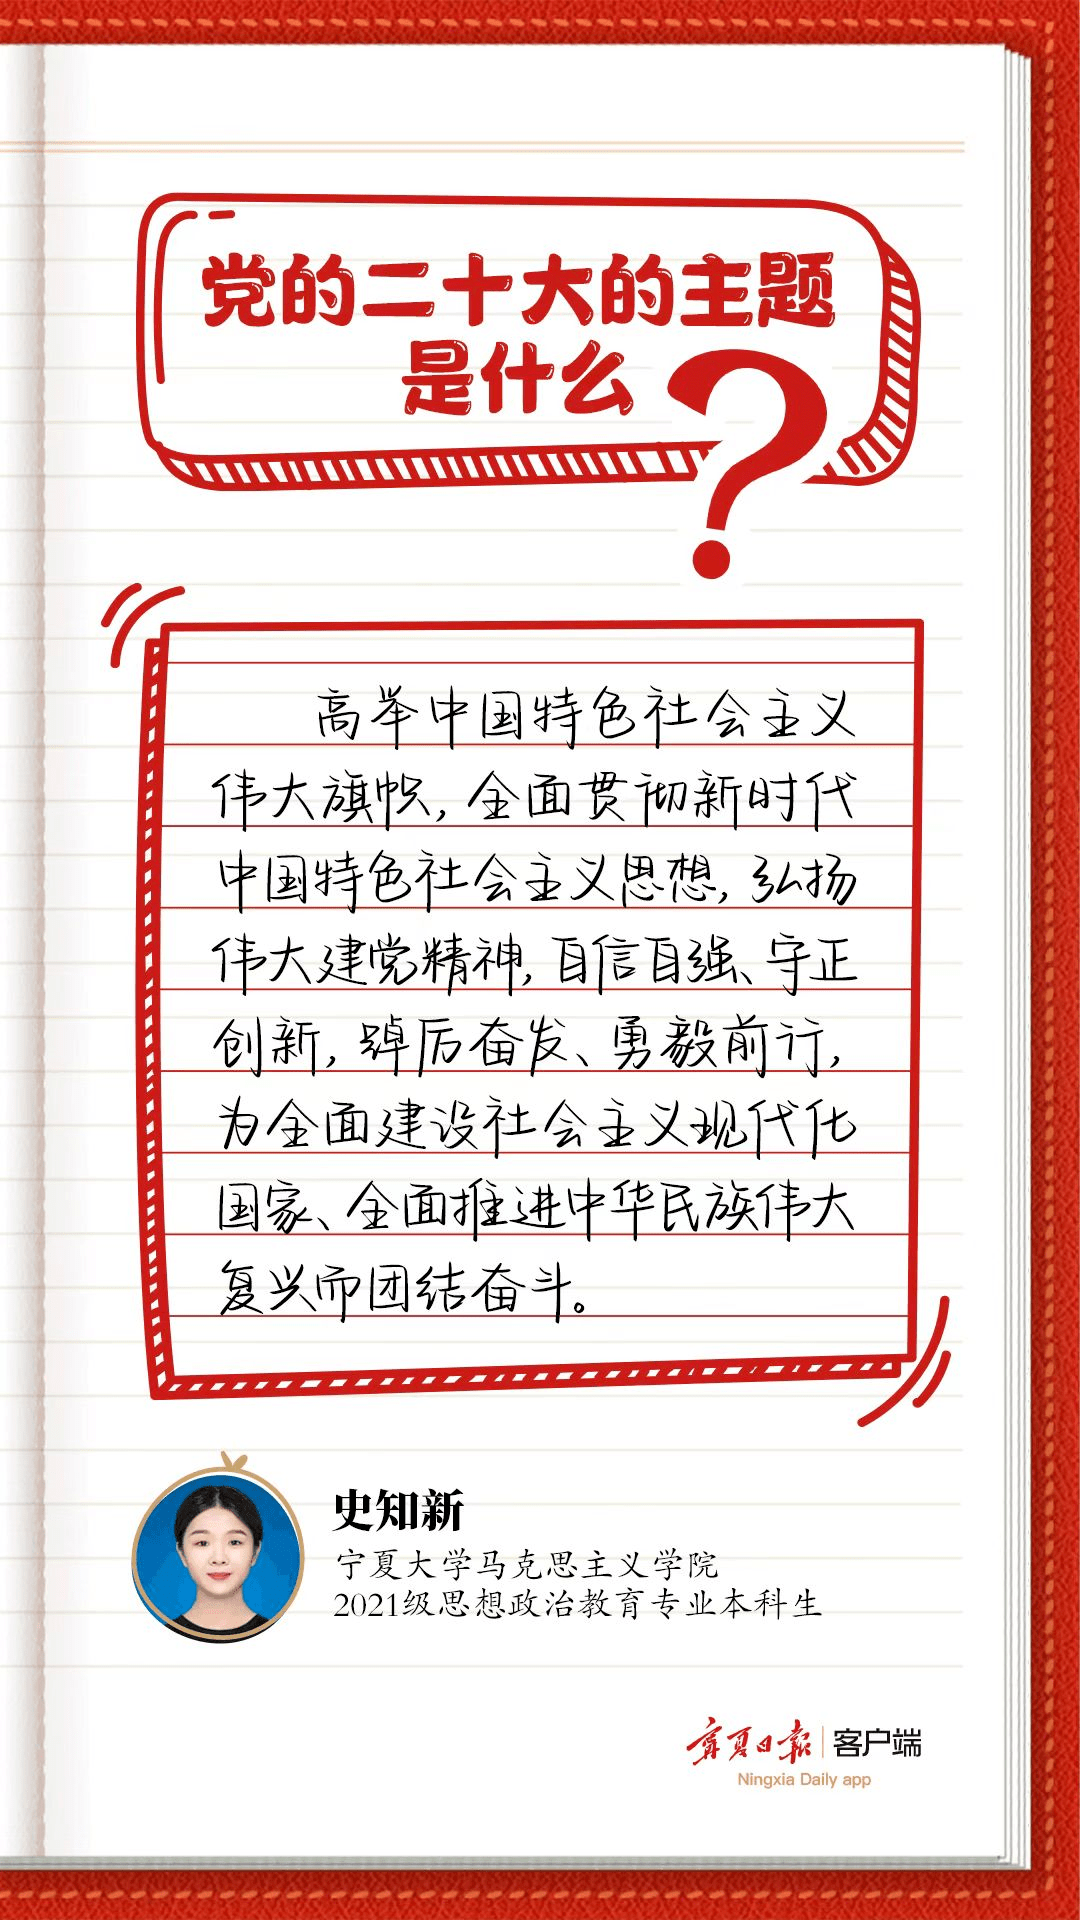 党的二十大的主题
是什么?
高举中国特色社会主义
伟大旗帜，全面贯彻新时代
中国特色社会主义思想，弘扬
伟大建党精神，自信自强、守正
创新，踔厉奋发、勇毅前行，
为全面建设社会主义现代化
国家、全面推进中华民族伟大
复兴而团结奋斗。
史知新
宁夏大学马克思主义学院
2021级思想政治教育专业本科生
宁夏日报|客户端
Ningxia Daily app